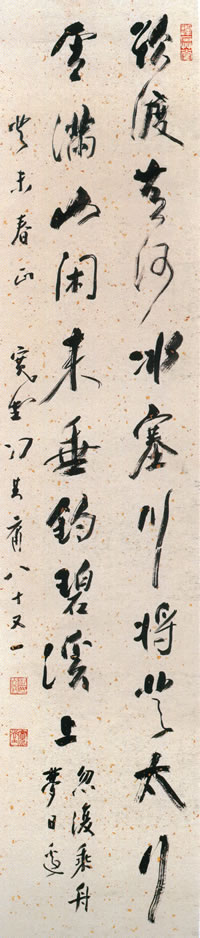 欲渡黄河冰塞川将登太行
雪满山闲来垂钓碧溪上
忽復乘舟
夢日边
癸未春正 宽堂冯其庸八十又一